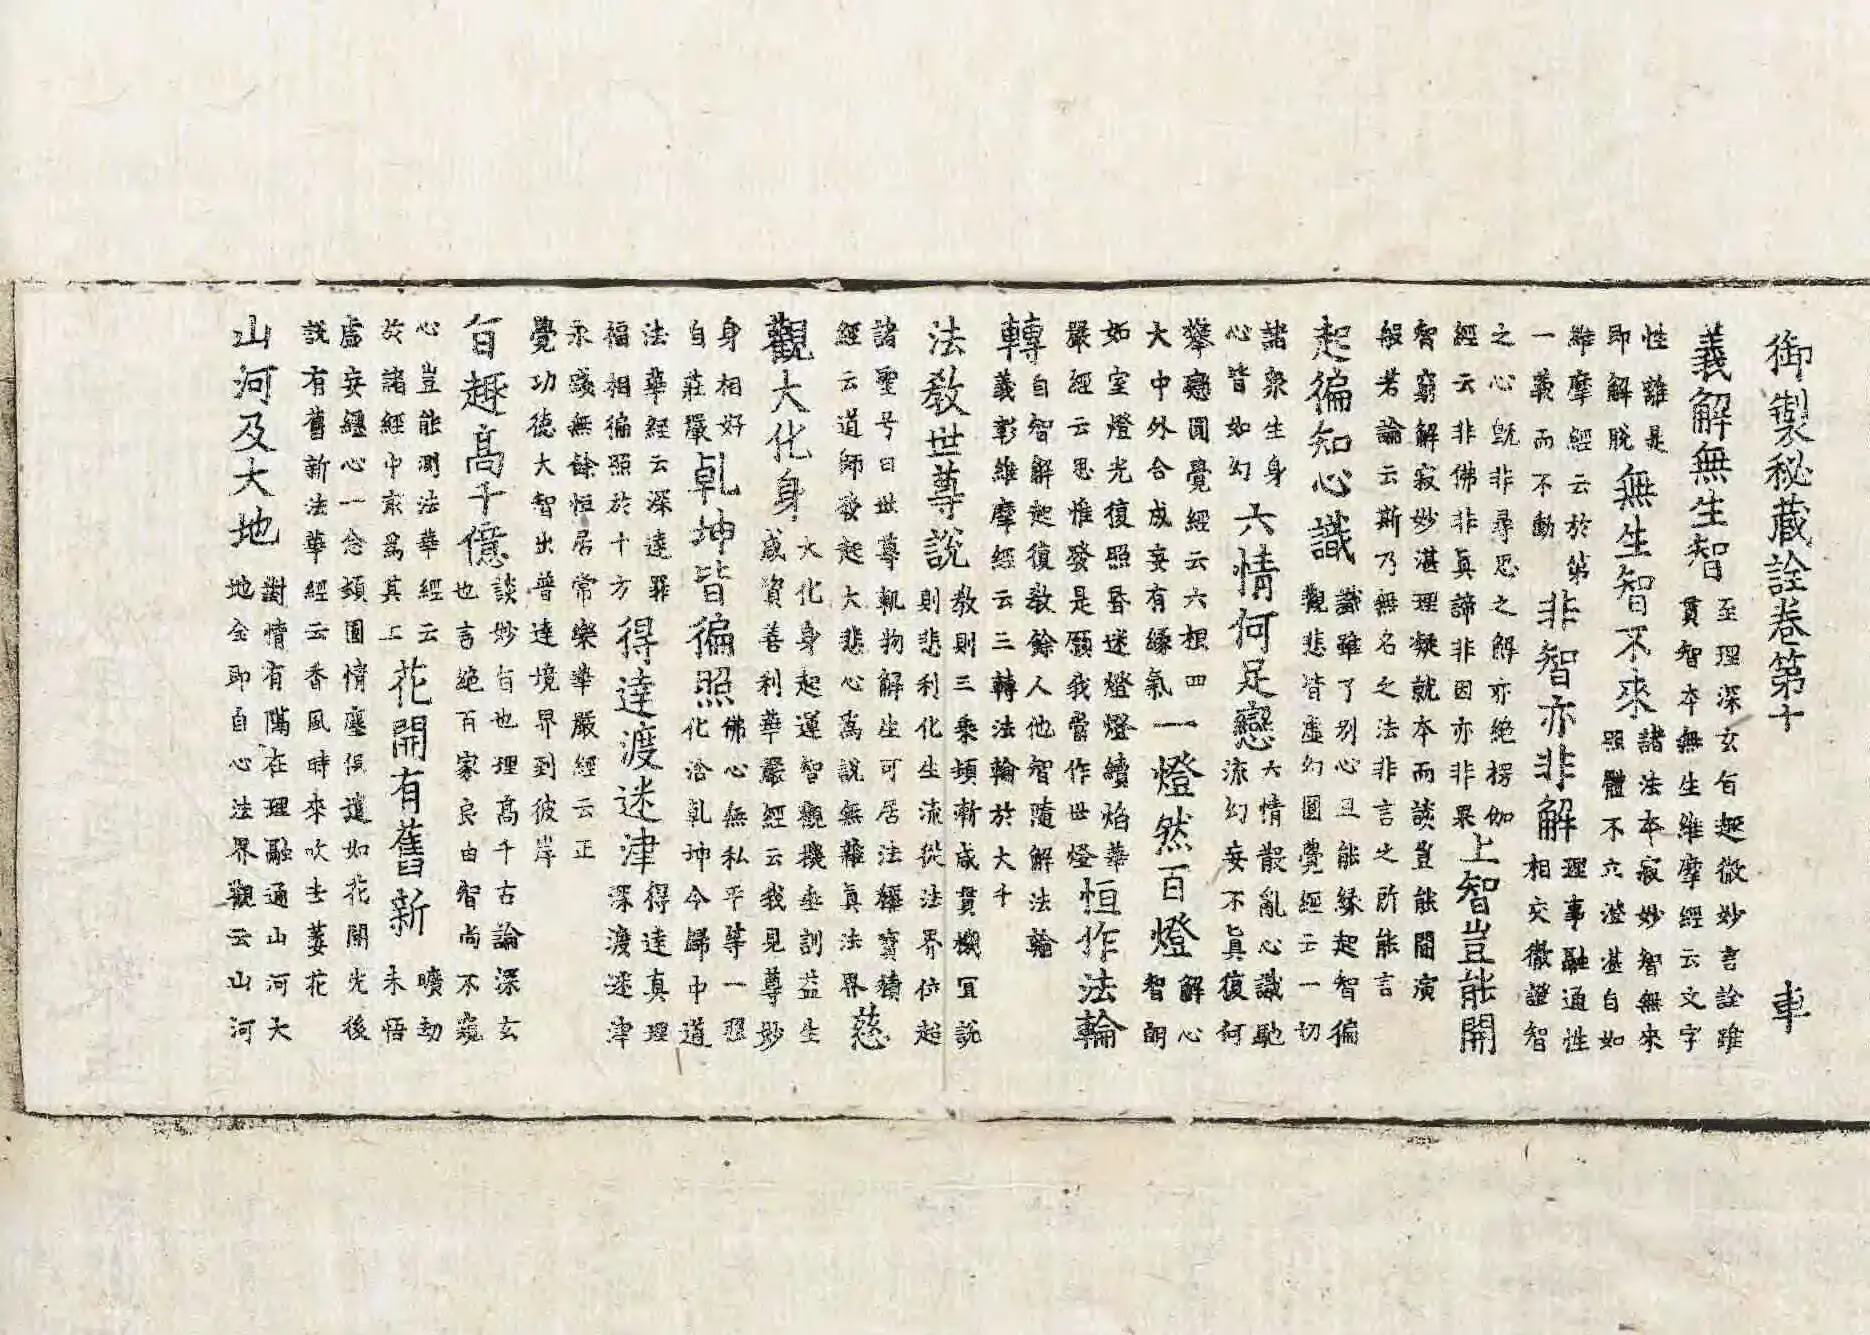 御製秘藏詮卷第十 車
義解無生智 至理深玄旨趣微妙言詮雖
貫智本無生維摩經云文字
性離是
即解脫 無生智不來 諸法本寂妙智無來
照體不亢澄湛自如
維摩經云於第
一義而不動 非智亦非解 理事融通性
相交徹證智
之心旣非尋思之解亦絕楞伽
經云非佛非真諦非因亦非果 上智豈能開
智窮解寂妙湛理凝就本而談豈能開演
般若論云斯乃無名之法非言之所能言
起徧知心識 識雖了别心且能緣起智徧
觀悲皆虛幻圓覺經云一切
諸衆生身
心皆如幻 六情何足戀 六情散亂心識馳
流幻妄不真復何
攀戀圓覺經云六根四
大中外合成妄有緣氣 一燈然百燈 解心
智朗
如室燈光復照昏迷燈燈續焰華
嚴經云思惟發是願我當作世燈 恒作法輪
轉 自智解起復教餘人他智隨解法輪
義彰維摩經云三轉法輪於大千
法教世尊說 教則三乘頓漸咸貫機冝說
則悲利化生流從法界位起
諸聖号曰世尊軌物解生可居法樞寶積
經云道師發起大悲心爲說無離真法界 慈
觀大化身 大化身起運智觀機垂訓益生
咸資善利華嚴經云我見尊妙
身相好
自莊嚴 乹坤皆徧照 佛心無私平等一照
化洽乹坤今歸中道
法華經云深達罪
福相徧照於十方 得達渡迷津 得達真理
深渡迷津
永踐無餘恒居常樂華嚴經云正
覺功德大智出普達境界到彼岸
旨趣高千億 談妙旨也理高千古論深玄
也言絕百家良由智尚不窺
心豈能測法華經云
於諸經中㝡爲其上 花開有舊新 曠劫
未悟
虛妄纏心一念頓圓情塵俱遣如花開先後
說有舊新法華經云香風時來吹去萎花
山河及大地 對情有隔在理融通山河大
地全即自心法界觀云山河